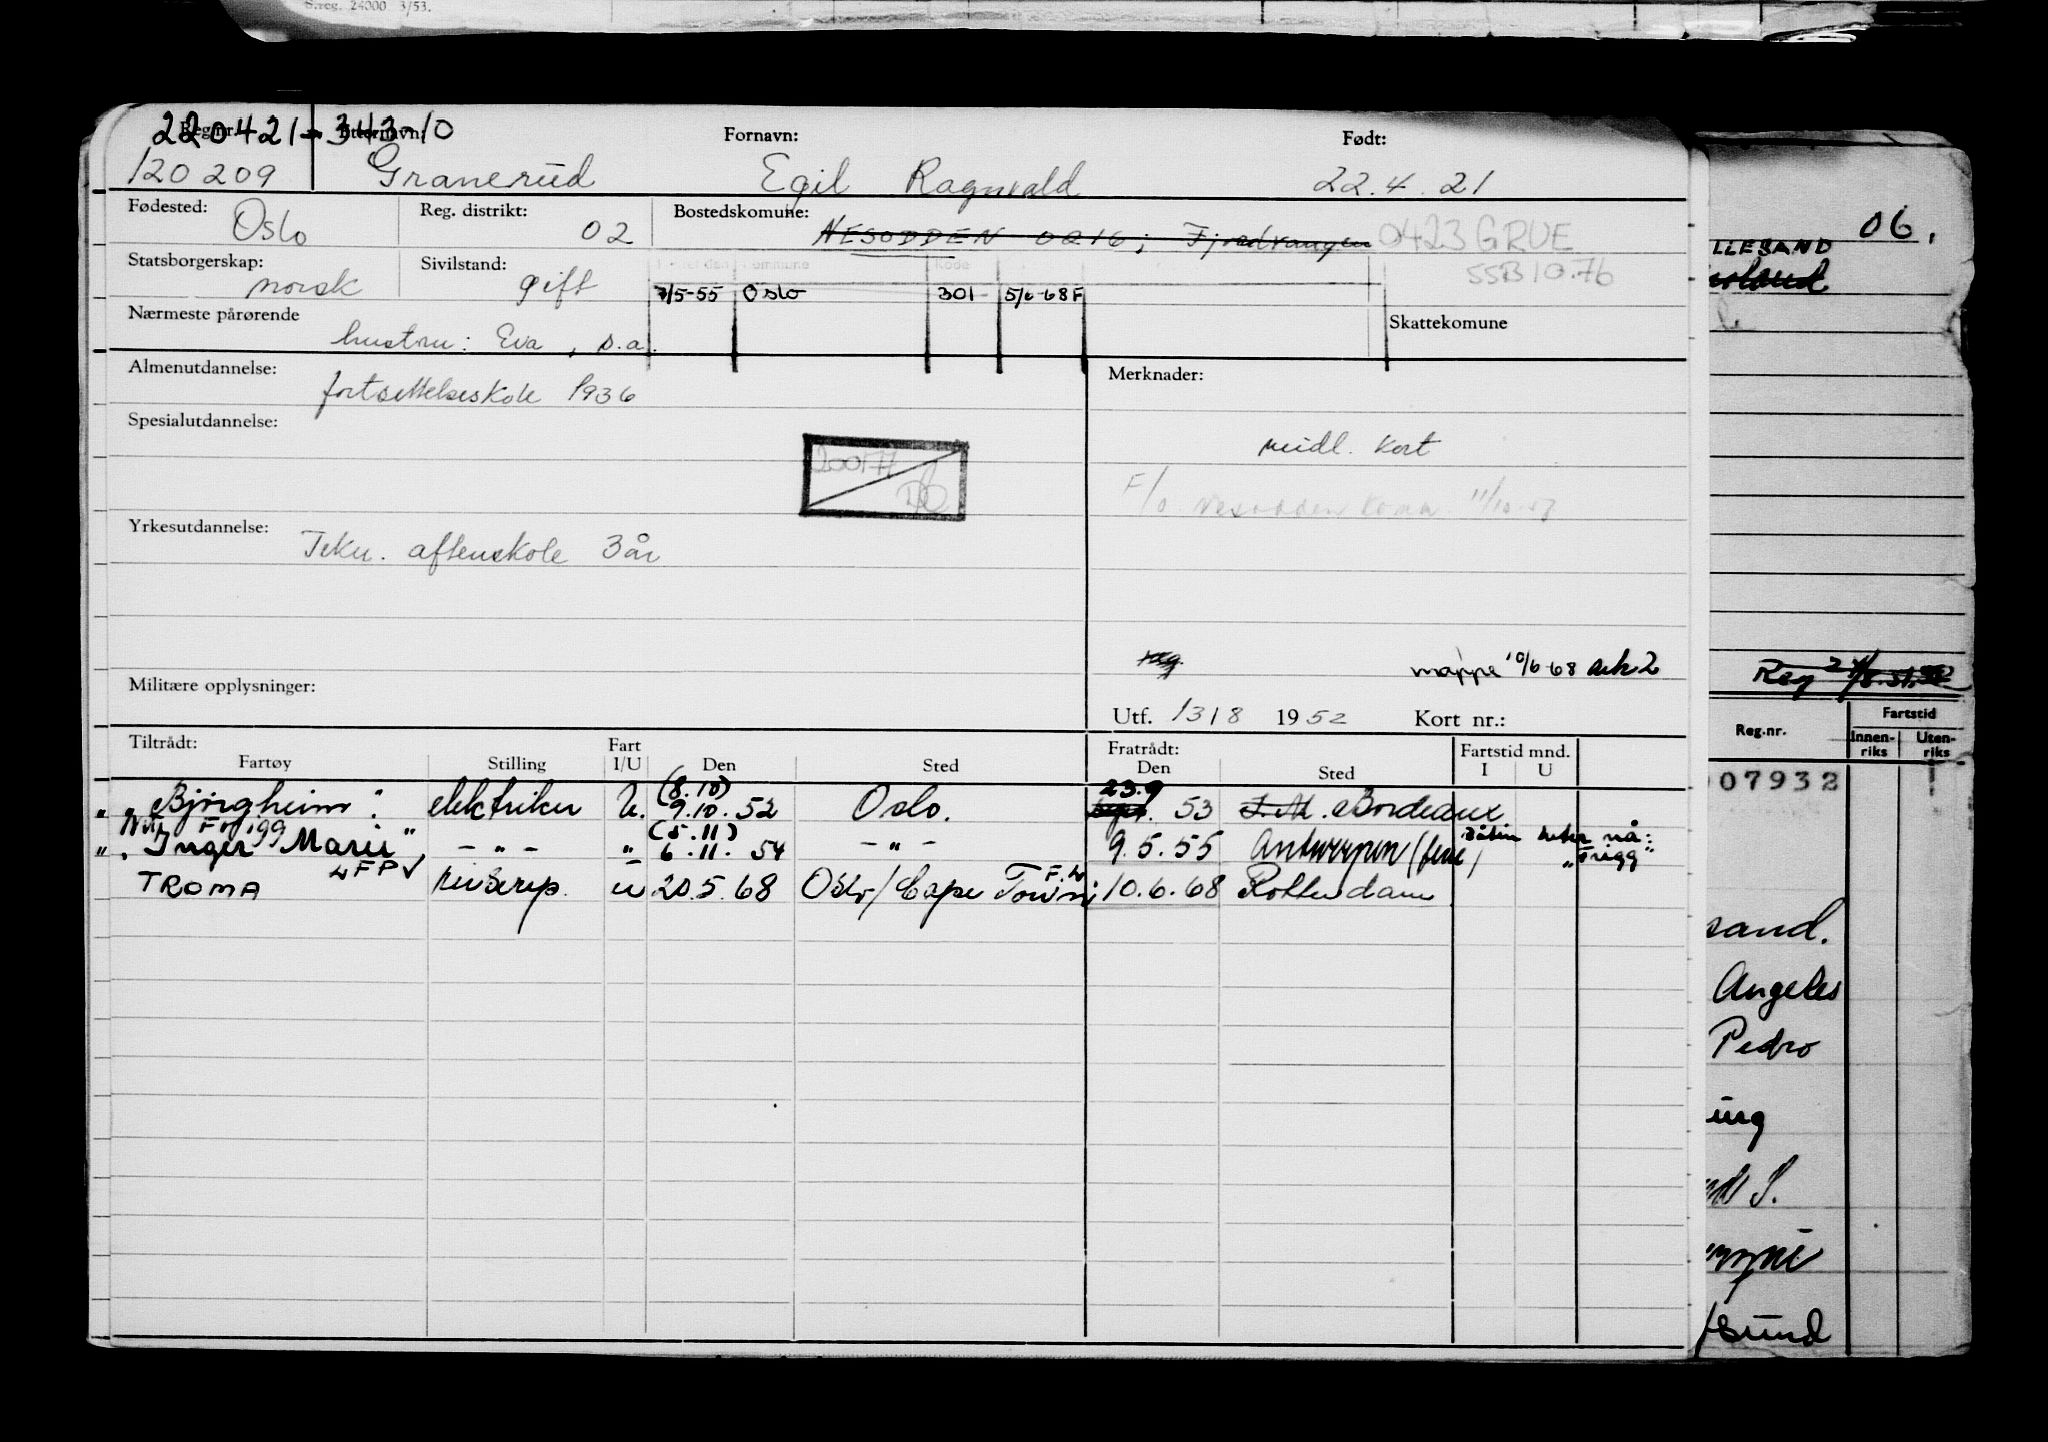 S.reg. 24000 3/53.
220421-34310
Reg.nr. Etternavn: Fornavn: Født:
120209 Granerud Egil Ragnvald 22.4.21
Fødested: Oslo Reg. distrikt: 02 Bostedskommune: NESODDEN 0216; Fjordvangen 0423 GRUE
SSB 10.76
Statsborgerskap: norsk Sivilstand: gift
7/5-55 Oslo 301- 5/6-68 F
Nærmeste pårørende hustru: Eva, s.a. Skattekomune
Almenutdannelse: fortsettelseskole 1936 Merknader:
Spesialutdannelse:
midl. kort
200177
F/o Nesodden komm. 11/10-57
Yrkesutdannelse: Tekn. aftenskole 3 år
mappe 10/6-68 ark 2
Militære opplysninger:
Utf. 1318 1952 Kort nr.:
Tiltrådt: Fratrådt:
Fartøy Stilling Fart I/U Den Sted Den Sted Fartstid mnd. I U
"Bjørgheim" elektriker U. (8.10) 9.10.52 Oslo. 23.9 53 Bordeaux
Frigg
"Inger Marie" - " - " (5.11) 6.11.54 - " - 9.5.55 Antwerpen Båten heter nå: "Frigg"
TROMA FP U 20.5.68 Oslo/Cape Town 10.6.68 Rotterdam
06.
LLESAND
Reg.nr. Fartstid
Innenriks Utenriks
07932
sand.
Angeles
Pedro
S.
sund